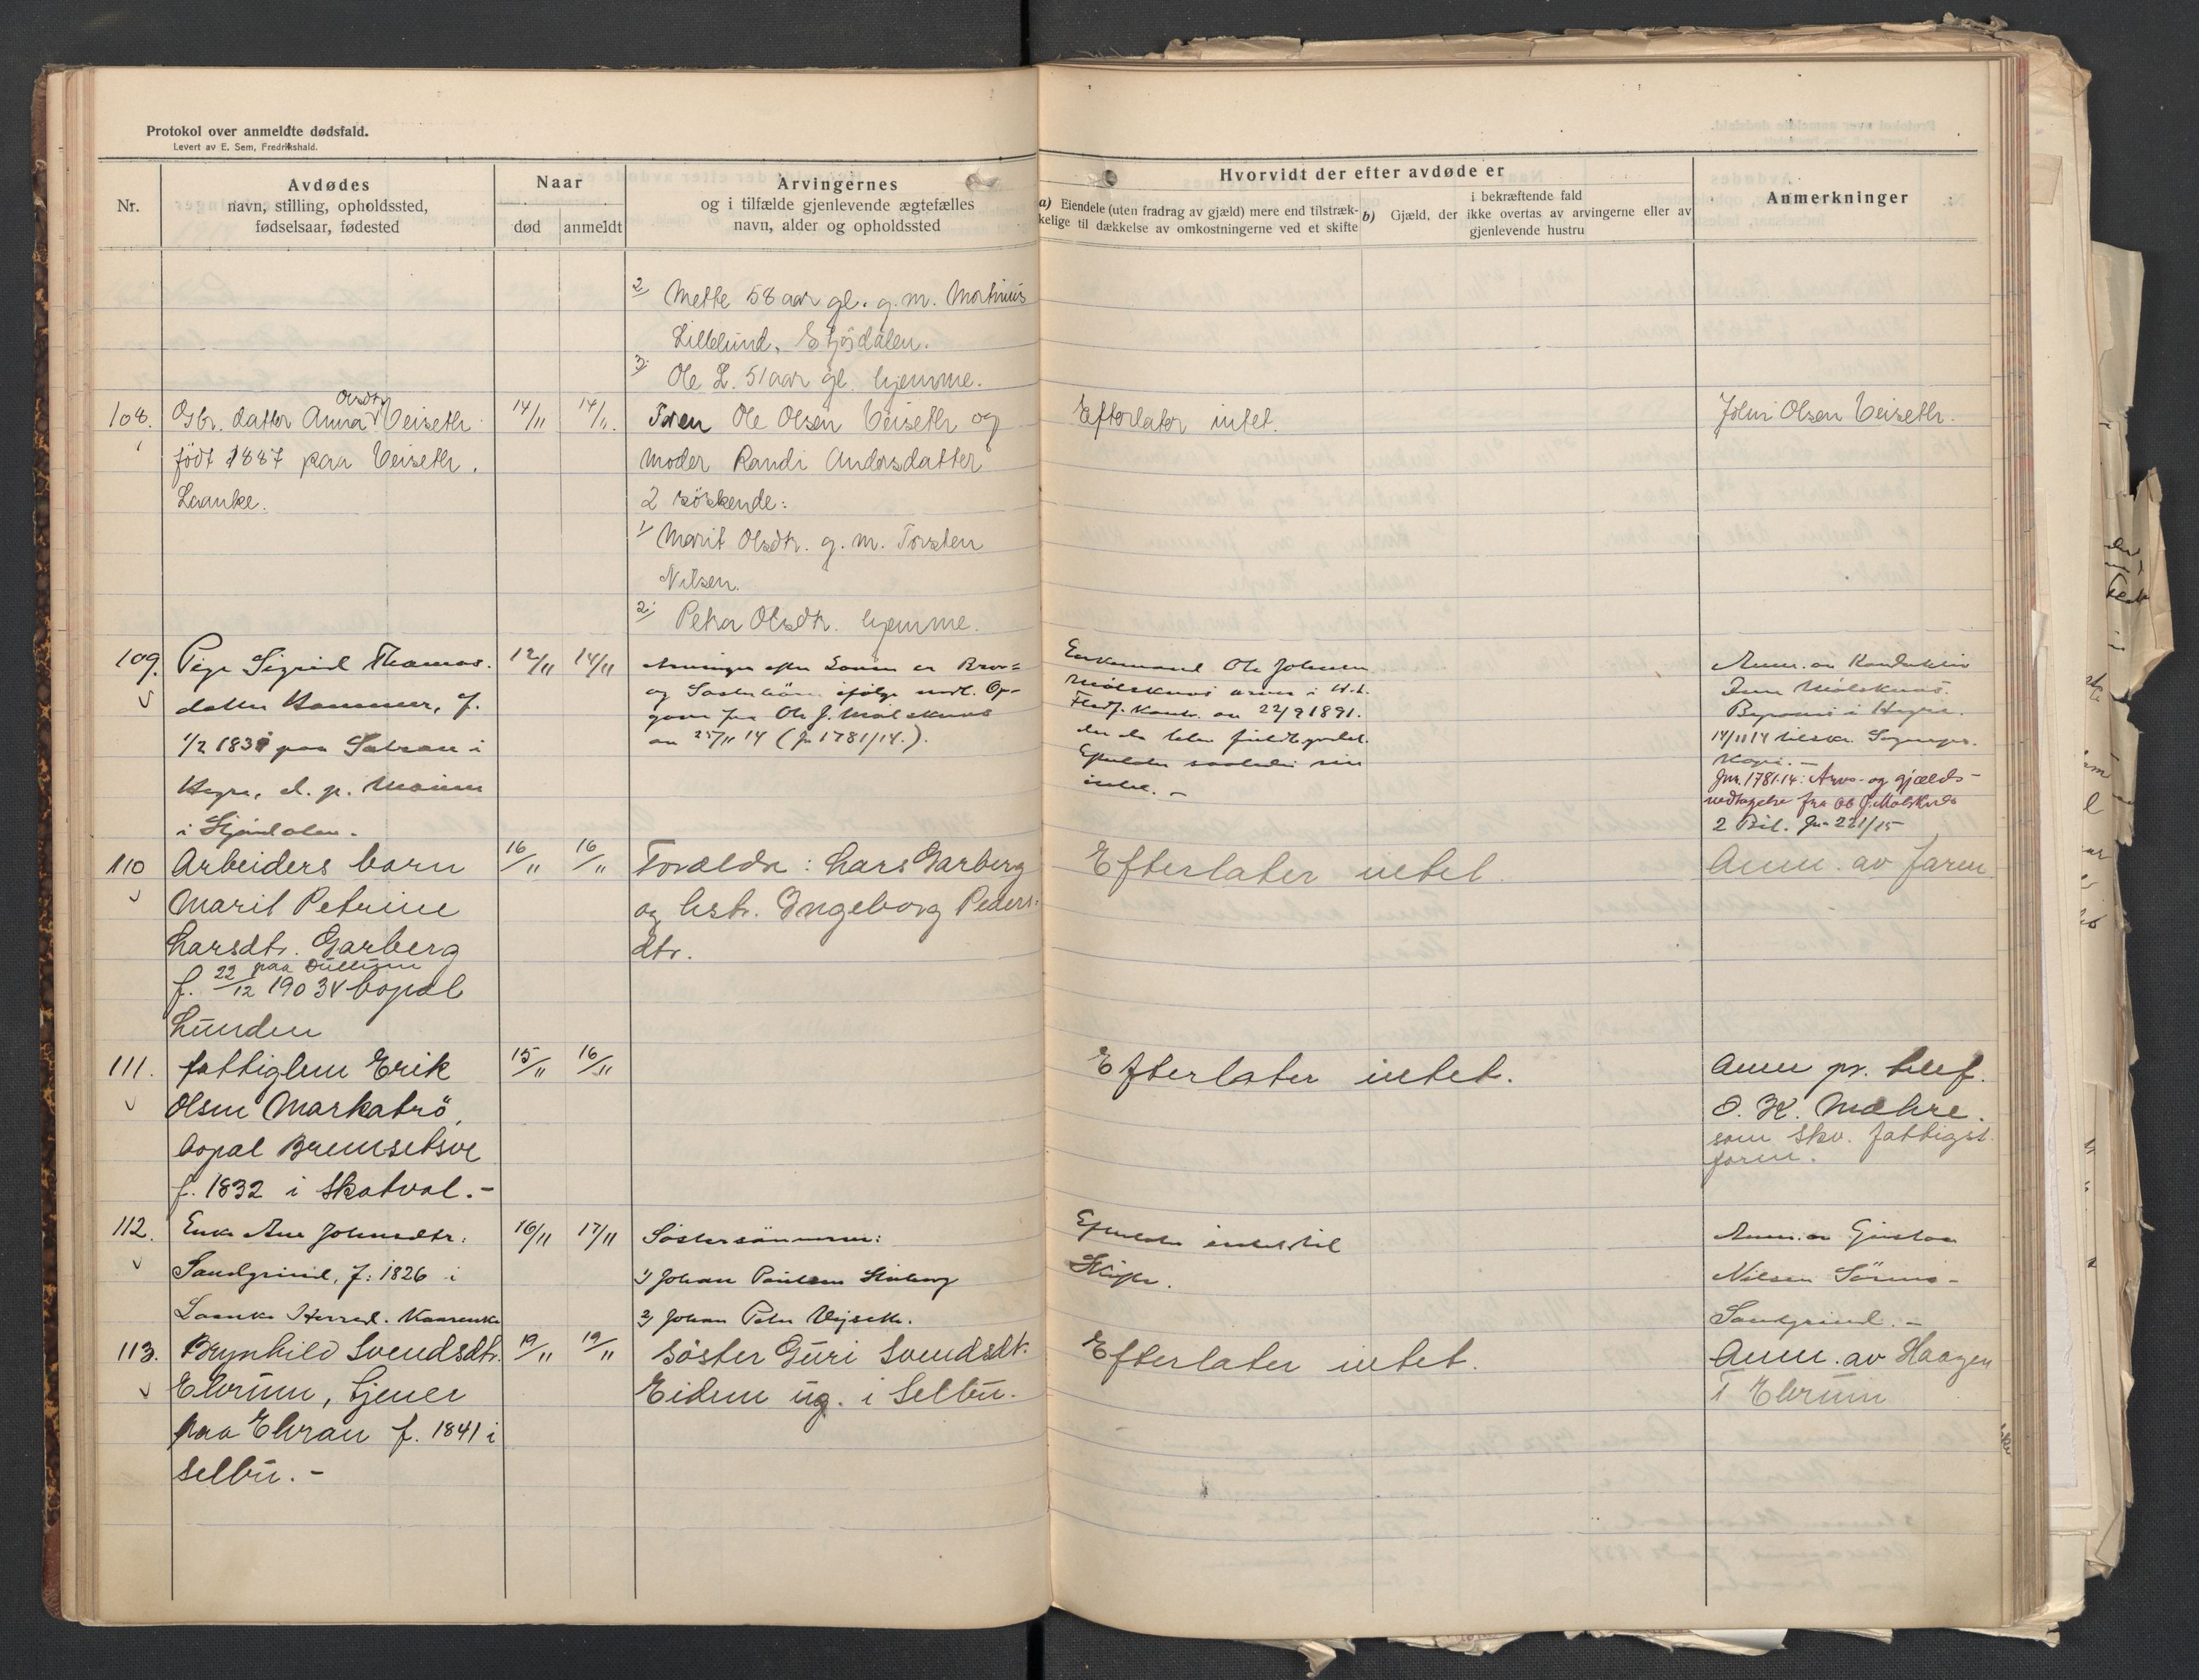 Protokol over anmeldte dødsfald.
Levert av E. Sem, Fredrikshald.
Nr.
Avdødes
navn, stilling, opholdssted,
fødselsaar, fødested
Naar
død
anmeldt
Arvingernes
og i tilfælde gjenlevende ægtefælles
navn, alder og opholdssted
Hvorvidt der efter avdøde er
a) Eiendele (uten fradrag av gjæld) mere end tilstræk-
kelige til dækkelse av omkostningerne ved et skifte
b) Gjæld, der i bekræftende fald
ikke overtas av arvingerne eller av
gjenlevende hustru
Anmerkninger
2/ Mette 58 aar gl. g. m. Martinus
Lillelund, Stjørdalen.
3/ Ole L. 51 aar gl. hjemme.
108. Gbr. datter Anna Olsdtr Veiseth
født 1887 paa Veiseth,
Laanke.
14/11 14/11
Faren Ole Olsen Veiseth og
Moder Randi Andersdatter
2 søskende:
1/ Marit Olsdtr. g. m. Torsten
Nilsen.
2/ Petra Olsdtr. hjemme.
Efterlater intet.
John Olsen Veiseth.
109. Pige Sigrid Thomas-
datter Hammer, f.
1/2 1831 paa i
Hegra, d. p.
i Stjørdalen.
12/11 14/11
Arvinger efter er Bror-
og Søsterbørn ifølge Op-
gave fra Ole J. Mølsknes
av 25/11 14 (J. 1781/14.).
Enkemand Ole Johnsen
Mølsknes
av 22/9 1891.
intet. -
Anm. av
Mølsknes.
i Hegra.
14/11 14 tilskr.
Kopi. -
Jnr. 1781.14: Arvs- og gjælds-
vedtagelse fra Ole J. Mølsknes
2 Bil. Jnr 221/15
110 Arbeiders barn
Marit Petrine
Larsdtr. Garberg
f. 22/12 1903 paa bopæl
Lunden
16/11 16/11
Forældre: Lars Garberg
og hstr. Ingeborg Peders-
dtr.
Efterlater intet.
Anm. av faren
111. fattiglem Erik
Olsen Markatrø,
bopæl
f. 1832 i Skatval. -
15/11 16/11
Efterlater intet.
Anm pr. telef.
O. K. Mæhre.
som Skv. fattigst.
form.
112. Enke Ane Johnsdtr.
Sandgrind, f: 1826 i
Laanke Herred.
16/11 17/11
Søstersønnerne:
1/ Johan Paulsen
2/ Johan Peter
Efterlater intet til
Skifte.
Anm. av Gustav
Nilsen
Sandgrind. -
113. Brynhild Svendsdtr.
Elvrum, tjener
paa Elvran f. 1841 i
Selbu. -
19/11 19/11
Søster Guri Svendsdt.
Eidem ug. i Selbu.
Efterlater intet.
Anm. av Haagen
T Elvrum